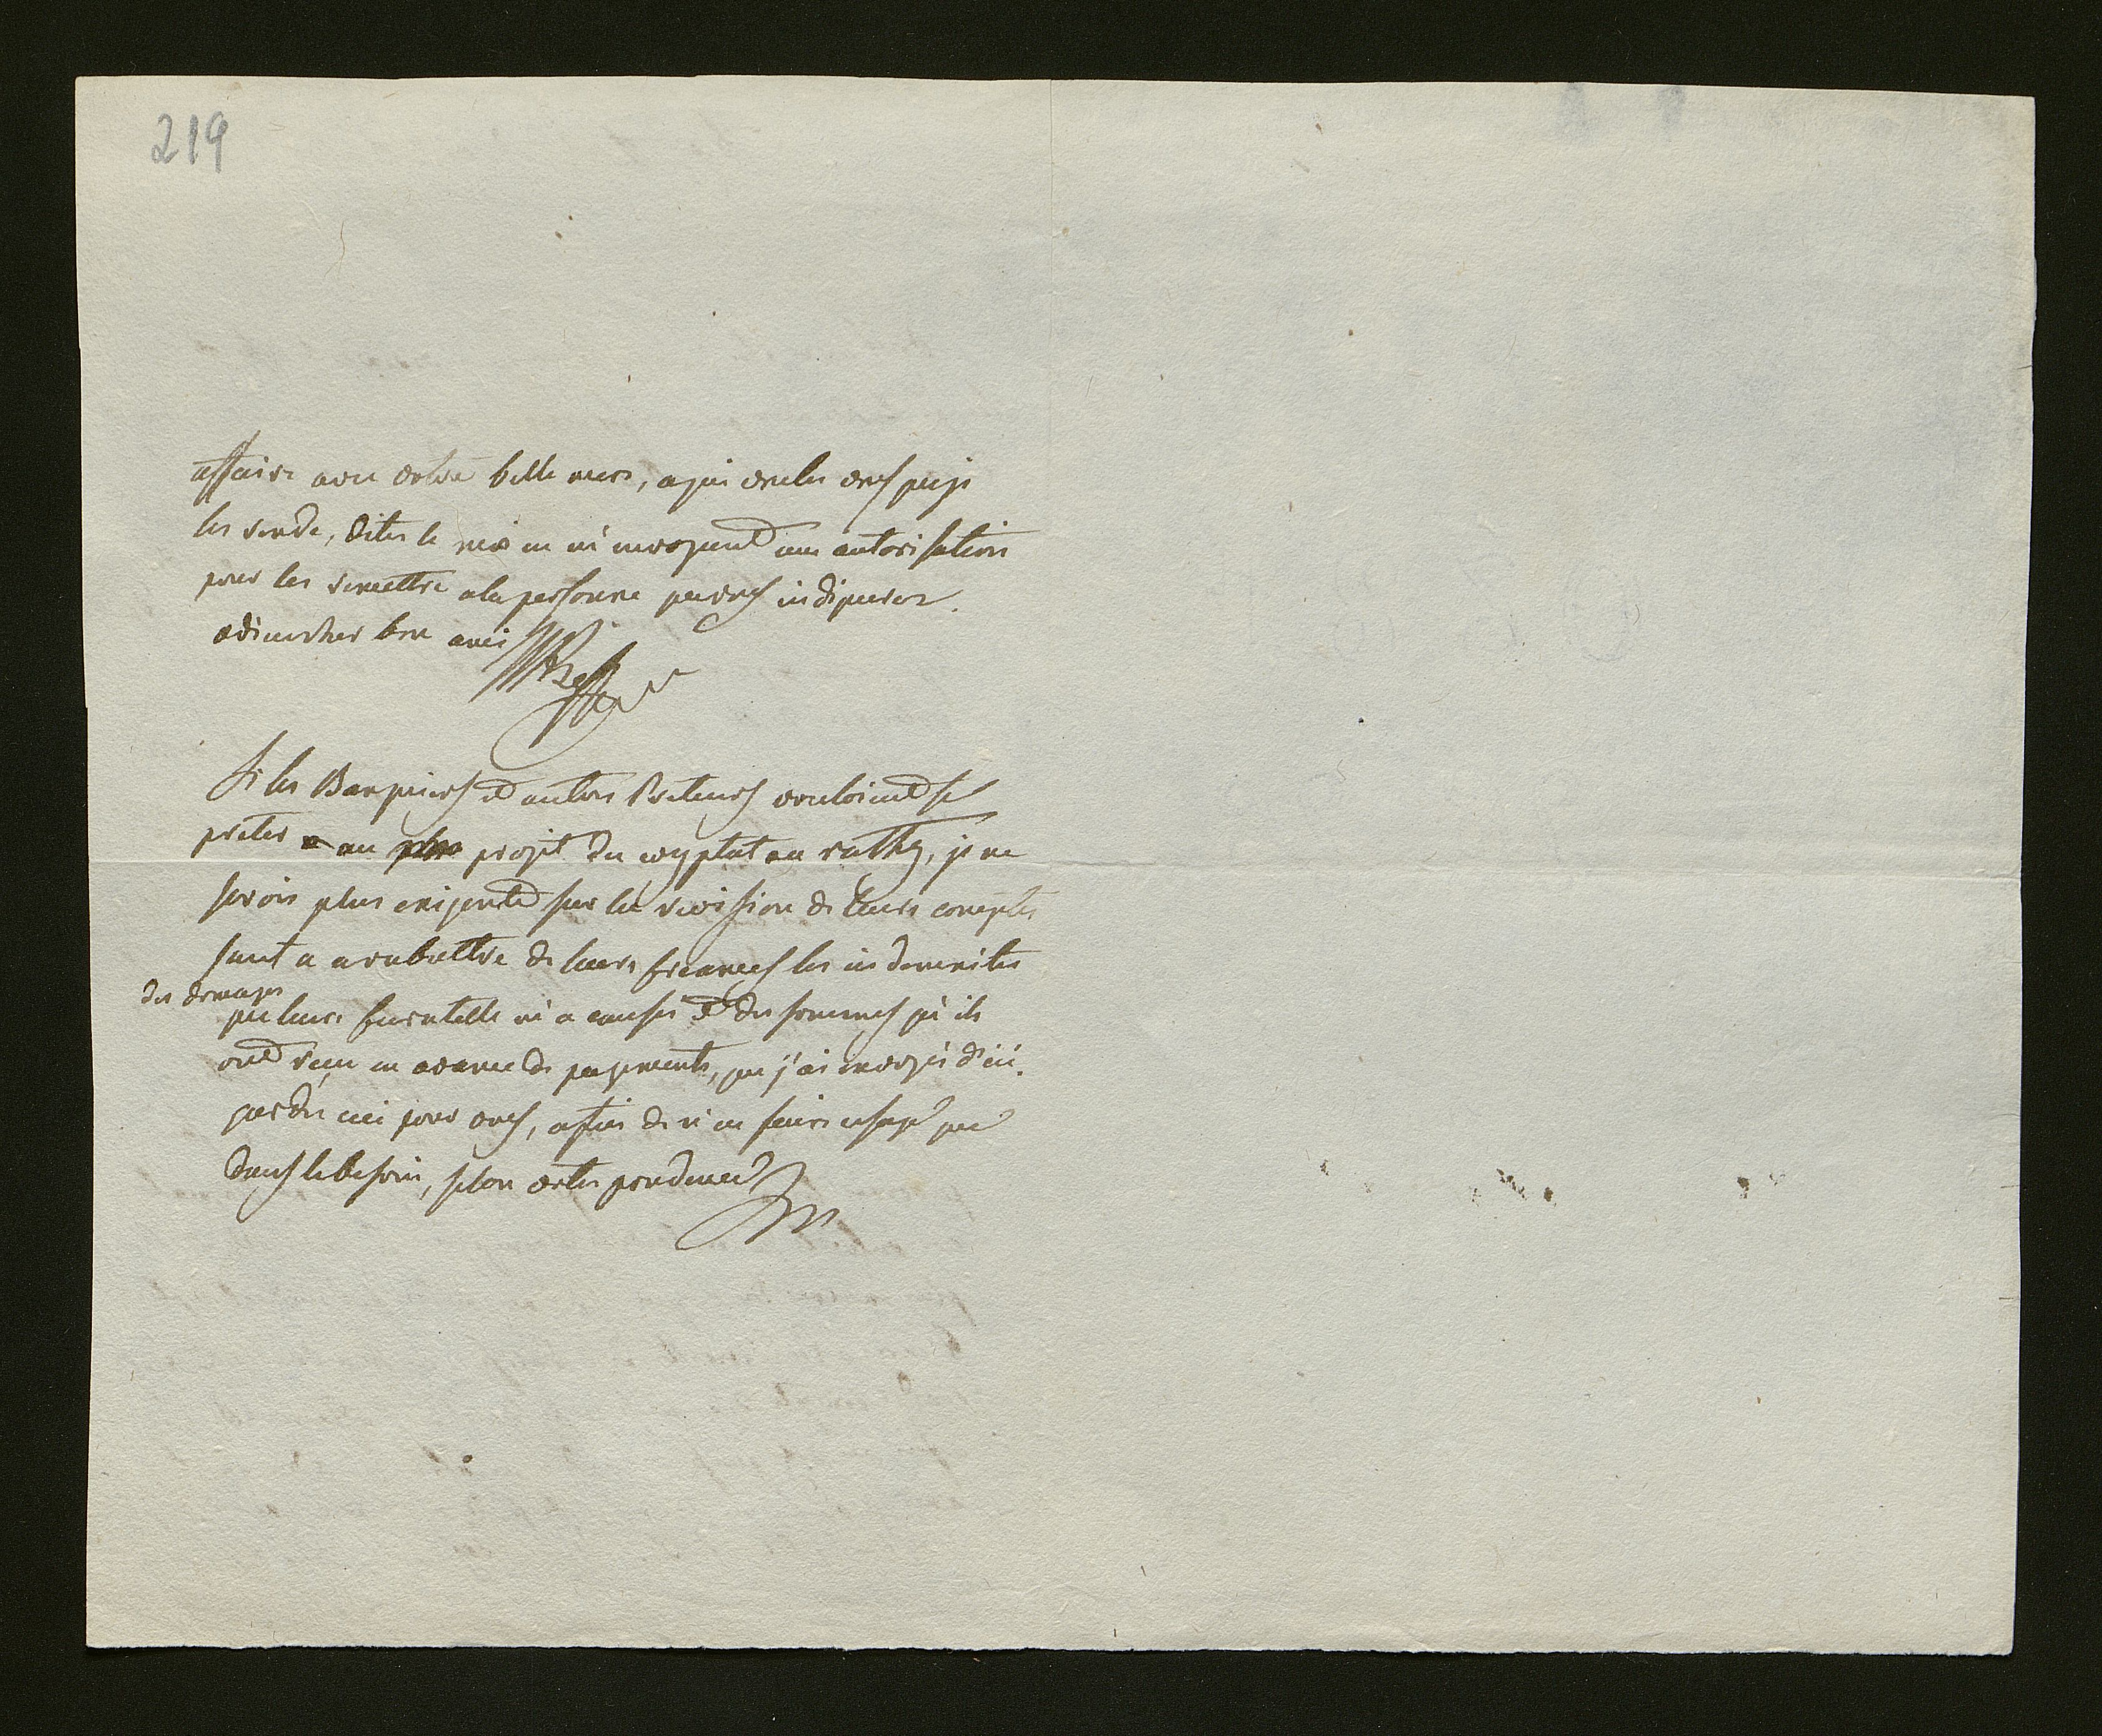 219
affaire avec votre belle mere, a qui voules vous que je
les rende, dites le moi en m'envoyant une autorisation
pour les remettre a la personne que vous indiqueres.
adieu cher bon ami
Si les Banquiers et autres Preteurs vouloient se
preter a au plan projet du comptat au rathy, je ne
serois plus exigent sur la revision de leurs comptes
sauf a a rabattre de leurs creances les indemnites
des domages
que leurs curatelle m'a causes et des sommes qu'ils
ont reçu en avance de payements, que j'ai envoyés d'ici.
gardes ceci pour vous, afin de n'en faire usage que
dans le besoin, selon votre prudence